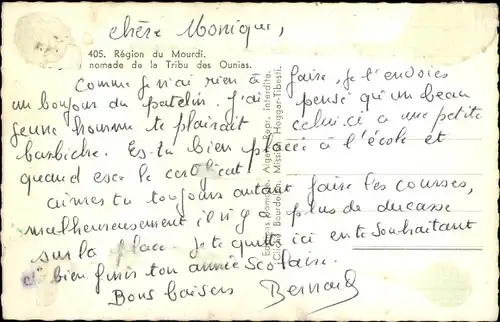 chère Monique,
405. Région du Mourdi.
nomade de la Tribu des Ounias.
Comme je n'ai rien à faire, je t'envoies
un bonjour du patelin. J'ai pensé qu'un beau
jeune homme te plairait celui-ci a une petite
barbiche. Es-tu bien placée à l'école et
quand est ce le certificat
aimes tu toujours autant faire les courses,
malheureusement il n'y a plus de ducasse
sur la place. Je te quitte ici en te souhaitant
de bien finir ton année scolaire.
Bons baisers Bernard
Alger - Repr. interdite.
Cliché Bourdelon. Mission Hoggar-Tibesti.